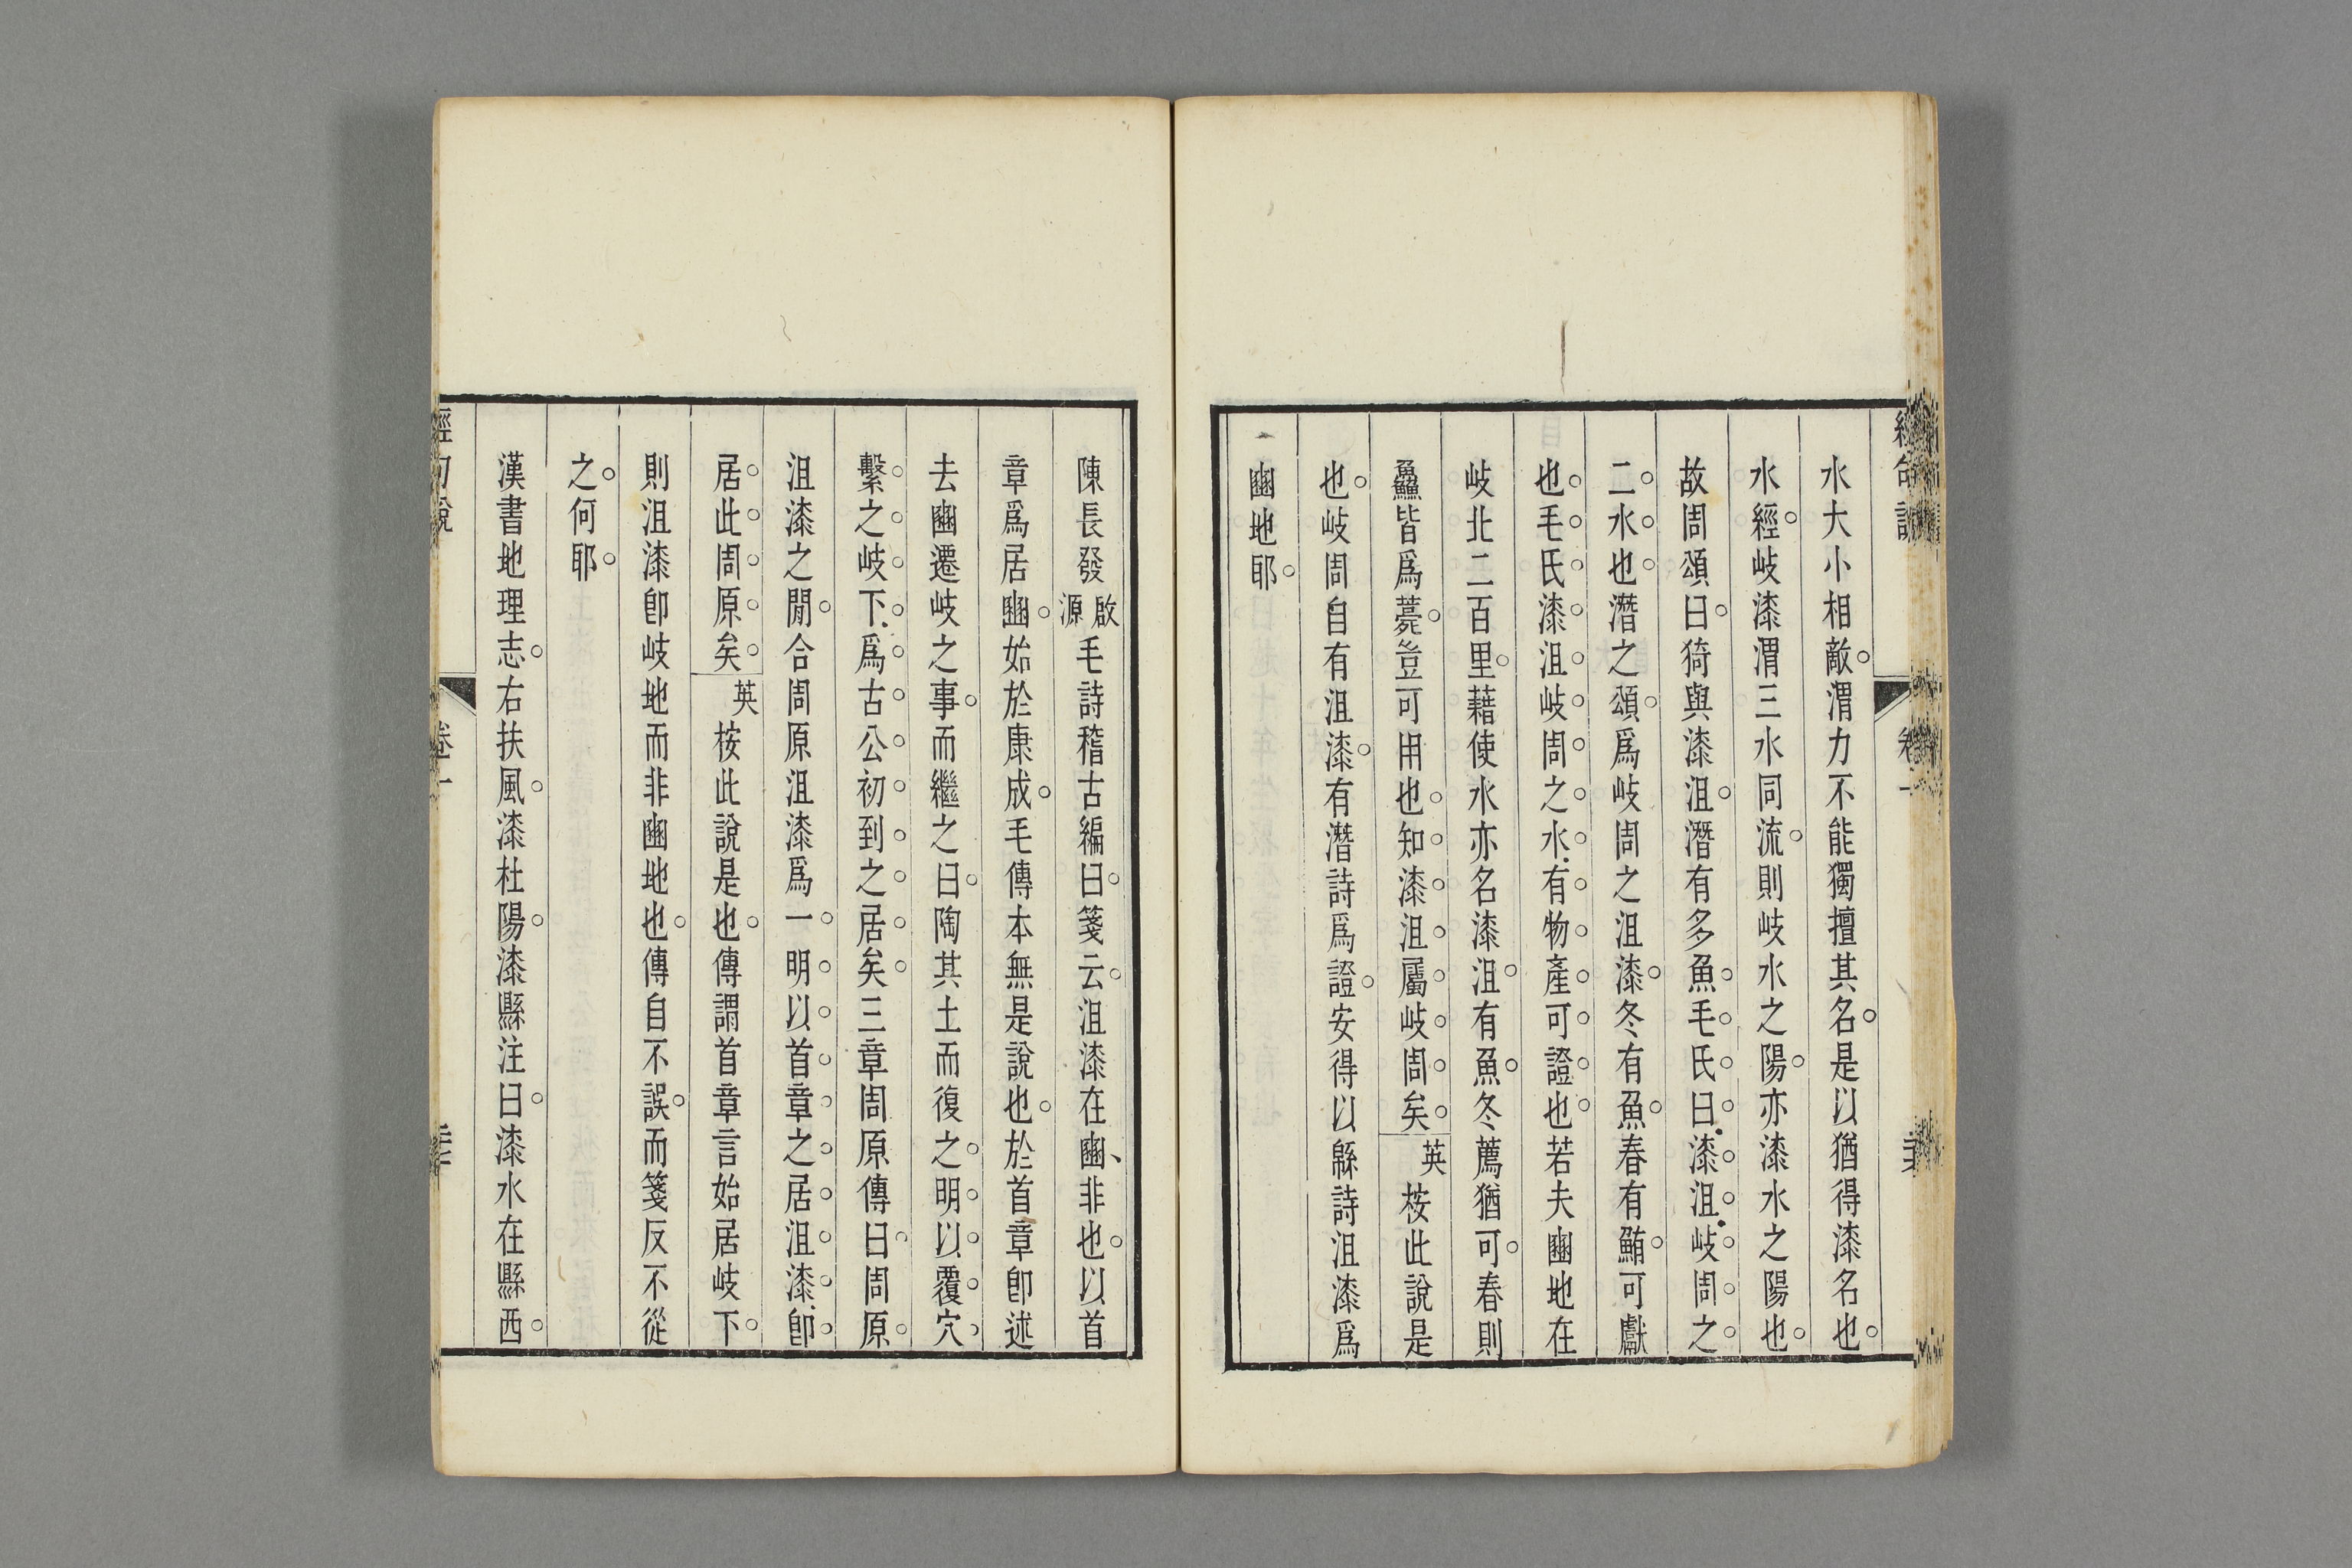 水大小相敵渭力不能獨擅其名是以猶得漆名也
水經岐漆渭三水同流則岐水之陽亦漆水之陽也
故周頌曰猗與漆沮潛有多魚毛氏曰漆沮岐周之
二水也潛之頌爲岐周之沮漆冬有魚春有鮪可獻
也毛氏漆沮岐周之水有物產可證也若夫豳地在
岐北二百里藉使水亦名漆沮有魚冬薦猶可春則
鱻皆爲薧豈可用也知漆沮屬岐周矣英按此說是
也岐周自有沮漆有潛詩爲證安得以緜詩沮漆爲
豳地耶
陳長發啟源毛詩稽古編曰箋云沮漆在豳非也以首
章爲居豳始於康成毛傳本無是說也於首章卽述
去豳遷岐之事而繼之曰陶其土而復之明以覆穴
繫之岐下爲古公初到之居矣三章周原傳曰周原
沮漆之閒合周原沮漆爲一明以首章之居沮漆卽
居此周原矣英按此說是也傳謂首章言始居岐下
則沮漆卽岐地而非豳地也傳自不誤而箋反不從
之何耶
漢書地理志右扶風漆杜陽漆縣注曰漆水在縣西